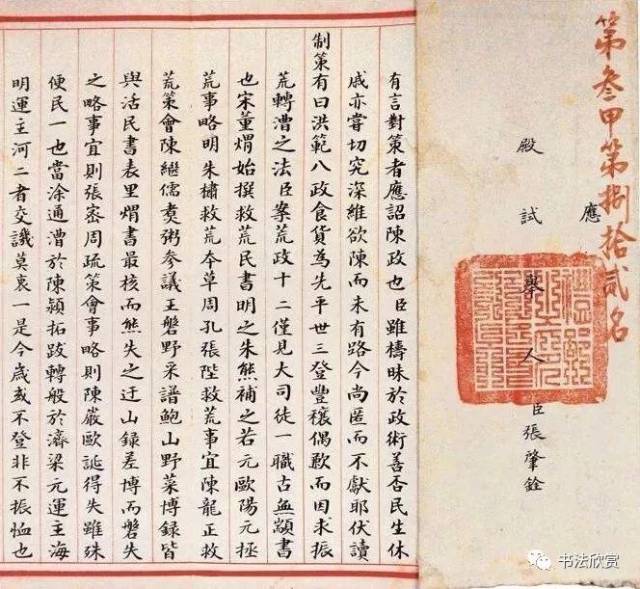 第叁甲第捌拾貳名
應
殿試舉人臣張肇銓
有言對策者應詔陳政也臣雖檮昧於政術善否民生休
戚亦嘗切究深維欲陳而未有路今尚匿而不獻耶伏讀
制策有曰洪範八政食貨為先平世三登豐穰偶歉而因求振
荒轉漕之法臣案荒政十二僅見大司徒一職古無顓書
也宋董煟始撰救荒民書明之朱熊補之若元歐陽元拯
荒事略明朱橚救荒本草周孔張陛救荒事宜陳龍正救
荒策會陳繼儒煑粥參議王磐野菜譜鮑山野菜博録皆
與活民書表里煟書最核而熊失之迂山録差博而磐失
之略事宜則張密周疏策會事略則陳嚴歐誕得失雖殊
便民一也當涂通漕於陳潁拓跋轉般於濟梁元運主海
明運主河二者交譏莫衷一是今歲或不登非不振恤也
书法欣赏